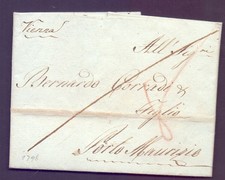 Vienna
All Sig.
Bernardo Corrado &
Figlio
Porto Maurizio
1798